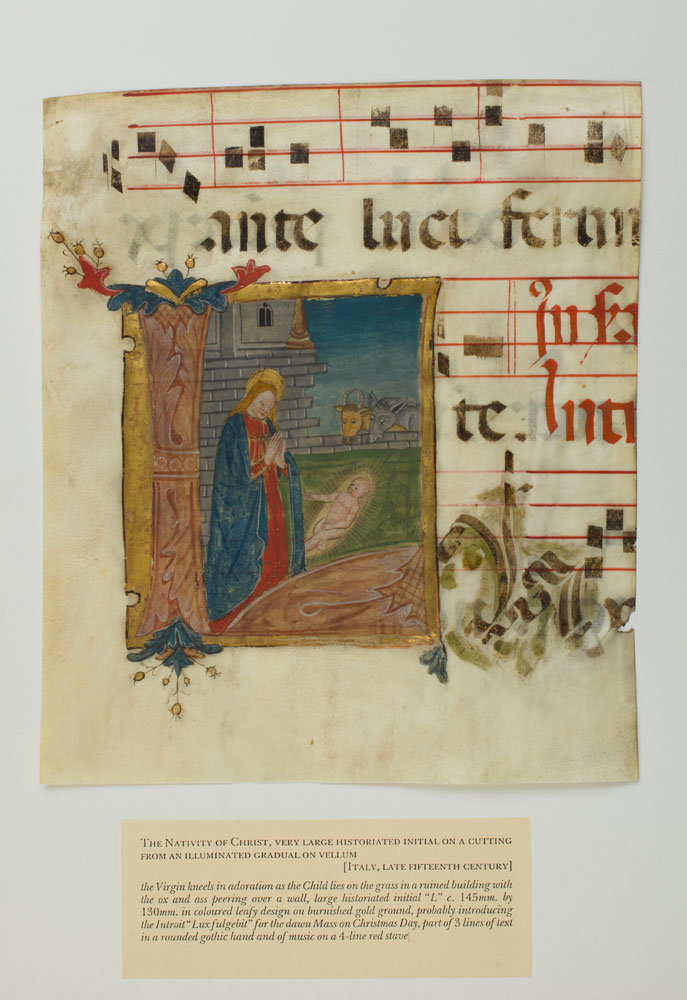 ante luci ferum
te. Intr
THE NATIVITY OF CHRIST, VERY LARGE HISTORIATED INITIAL ON A CUTTING
FROM AN ILLUMINATED GRADUAL ON VELLUM
[ITALY, LATE FIFTEENTH CENTURY]
the Virgin kneels in adoration as the Child lies on the grass in a ruined building with
the ox and ass peering over a wall, large historiated initial “L” c. 145mm. by
130mm. in coloured leafy design on burnished gold ground, probably introducing
the Introit “Lux fulgebit” for the dawn Mass on Christmas Day, part of 3 lines of text
in a rounded gothic hand and of music on a 4-line red stave